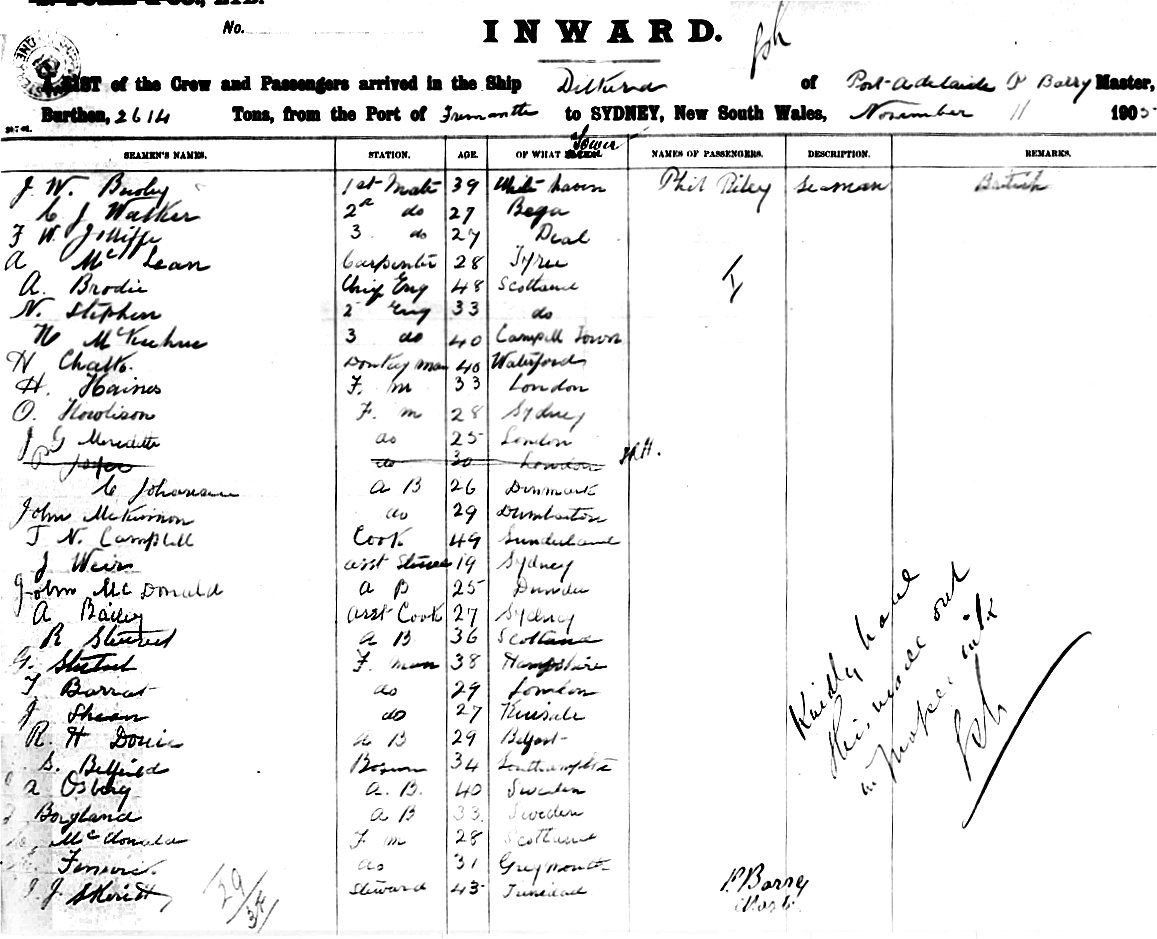 No.
INWARD.
LIST of the Crew and Passengers arrived in the Ship of Port-Adelaide P Barry Master,
Burthen, 2614 Tons, from the Port of Fremantle to SYDNEY, New South Wales, November 11 1905
SEAMEN'S NAMES. STATION. AGE. OF WHAT NAMES OF PASSENGERS. DESCRIPTION. REMARKS.
J. W. Busby 1st Mate 39 White haven Phil Riley Seaman British
C J Walker 2d do 27 Bega
F W Jolliffe 3 do 27 Deal
A McLean Carpenter 28 Tyree
A. Brodie Chief Eng 48 Scotland 1
N. Stephen 2 Eng 33 do
3 do 40 Campill Town
H Chalk Donkey man 40 Waterford
H. Haines F. m 33 London
O. Howlison F. m 28 Sydney
J G Meredith do 25 London
do 30 London
C Johansen A B 26 Denmark
John McKinnon do 29 Dumbarton
J N. Campbell Cook 49 Sunderland
J Weir asst 19 Sydney
John McDonald A B 25 Dundee
A Bailey asst Cook 27 Sydney
R A B 36 Scotland
G. F. man 38 Hampshire
T Barrat do 29 London
J Shean do 27 Kinsale
R. H A B 29 Belfast
S. Belfield Bosun 34 Southampton
Osberg A. B. 40 Sweden
Borgland A B 33 Sweden
McDonald F m 28 Scotland
do 31 Greymouth
J. Skeritt Steward 43 Trinidad
29/34
P. Barry
Master
Kindly have
this made out
in proper ink